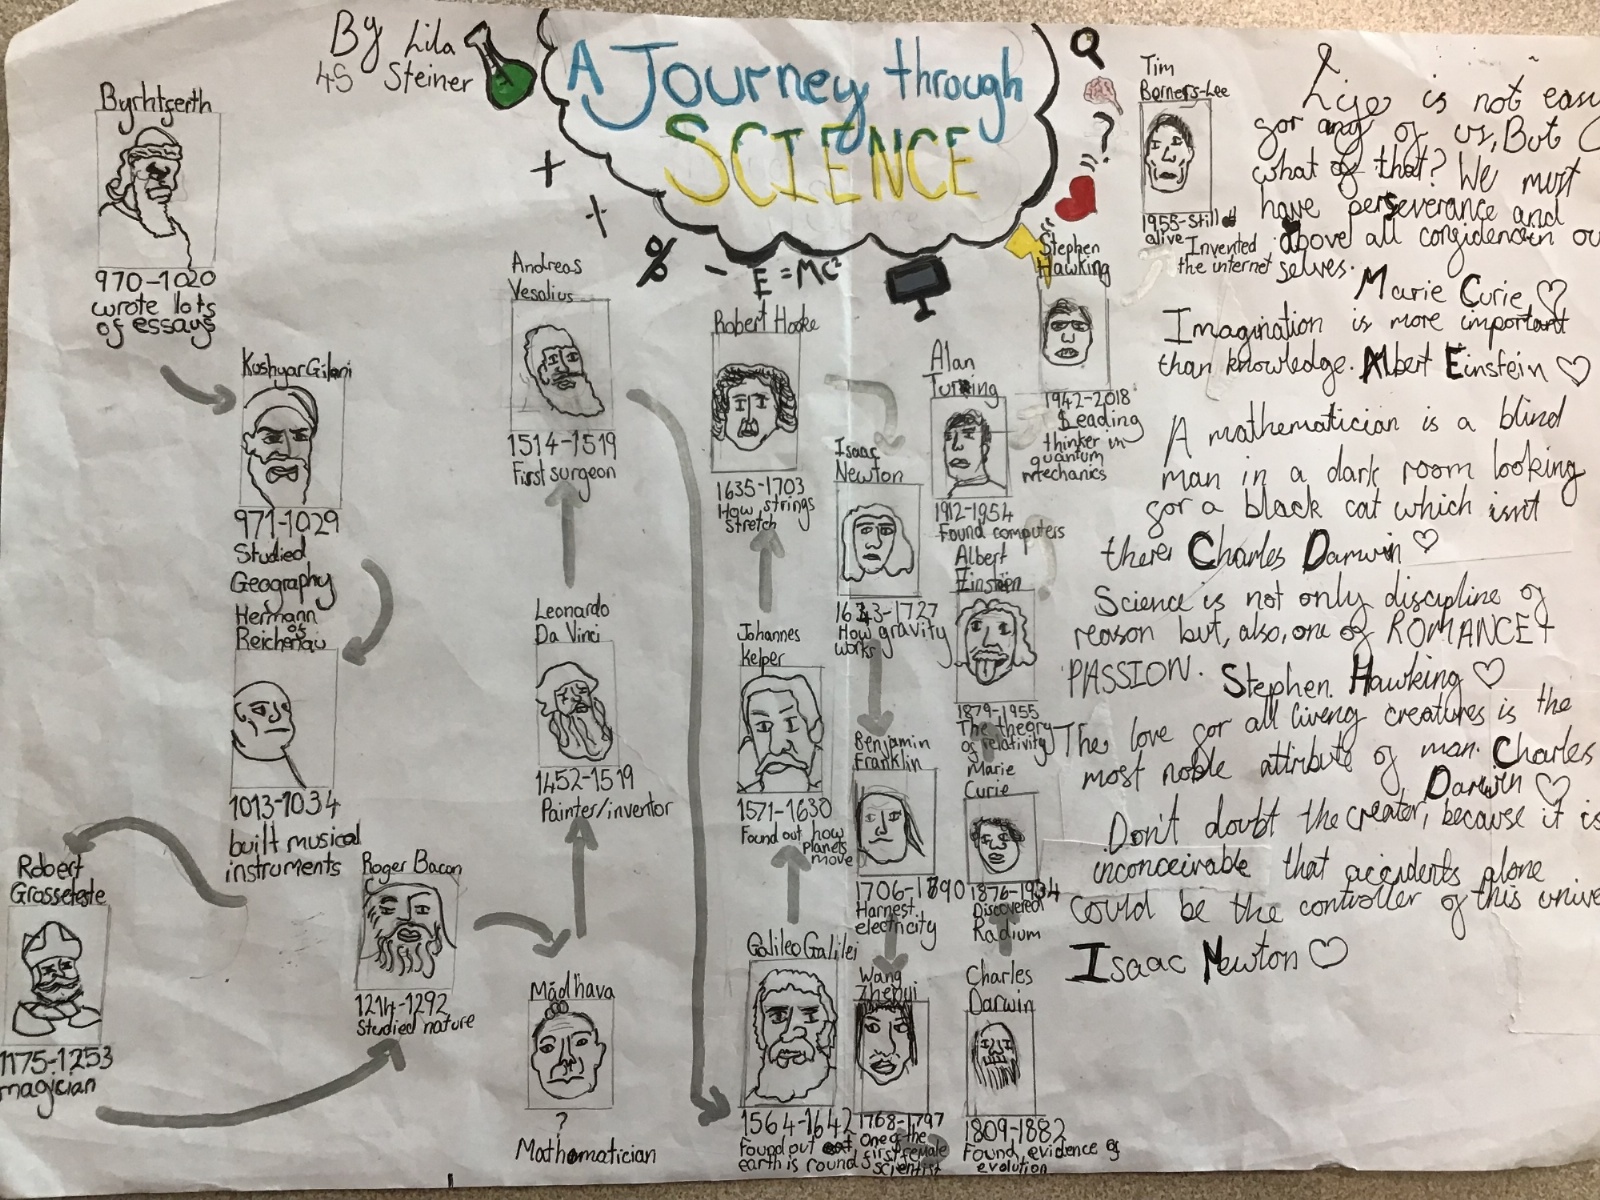 By Lila
4S Steiner
A Journey through
SCIENCE
+
+
%
-
E=MC²
?
Byrhtferth
970-1020
wrote lots
of essays
Kushyar Gilani
971-1029
Studied
Geography
Hermann
of
Reichenau
1013-1034
built musical
instruments
Robert
Grosseteste
1175-1253
magician
Roger Bacon
1214-1292
Studied nature
Mādhava
?
Mathematician
Leonardo
Da Vinci
1452-1519
Painter/inventor
Andreas
Vesalius
1514-1519
First surgeon
Galileo Galilei
1564-1642
Found out
earth is round
Johannes
Kelper
1571-1630
Found out how
planets
move
Robert Hooke
1635-1703
How strings
Stretch
Isaac
Newton
1643-1727
How gravity
works
Benjamin
Franklin
1706-1790
Harnest
electricity
Wang
Zhenyi
1768-1797
One of the
first female
scientist
Charles
Darwin
1809-1882
Found evidence of
evolution
Marie
Curie
1876-1934
Discovered
Radium
Albert
Einstein
1879-1955
The theory
of relativity
Alan
Turing
1912-1954
Found computers
Stephen
Hawking
1942-2018
Leading
thinker in
quantum
mechanics
Tim
Berners-Lee
1955-still
alive Invented
the internet
Life is not easy
for any of us, But
what of that? We must
have perseverance and
above all confidence in ou
selves.
Marie Curie ♡
Imagination is more important
than knowledge. Albert Einstein ♡
A mathematician is a blind
man in a dark room looking
for a black cat which isn't
there Charles Darwin ♡
Science is not only discipline of
reason but, also, one of ROMANCE +
PASSION. Stephen Hawking ♡
The love for all liveng creatures is the
most noble attribute of man. Charles
Darwin ♡
Don't doubt the creater, because it is
inconceivable that accidents alone
Could be the controller of this unive
Isaac Newton ♡